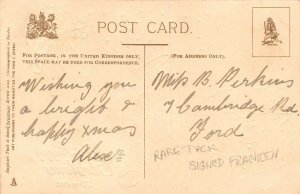 POST CARD.
FOR POSTAGE, IN THE UNITED KINGDOM ONLY,
THIS SPACE MAY BE USED FOR CORRESPONDENCE.
(FOR ADDRESS ONLY).
Wishing you
a bright &
happy xmas
Alex
Miss B. Perkins
7 Cambridge Rd
Ford
RARE TUCK
SIGNED FRANKEN